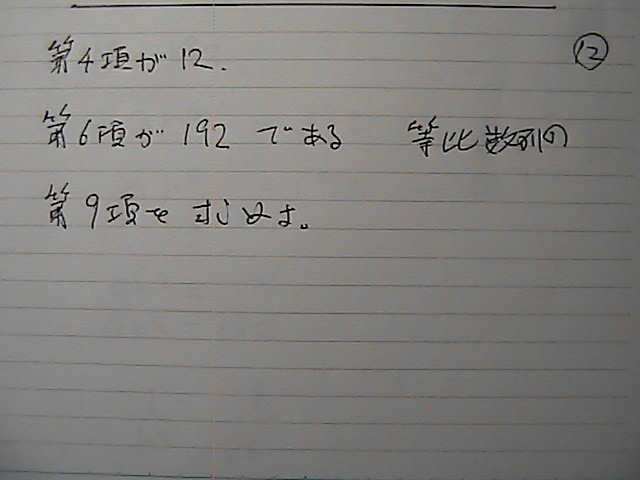 第4項が12. ⑫
第6項が192である 等比数列の
第9項を求めよ。